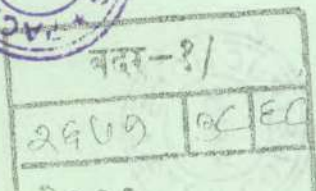 बदर-१/
२६७१ ३८ ६८